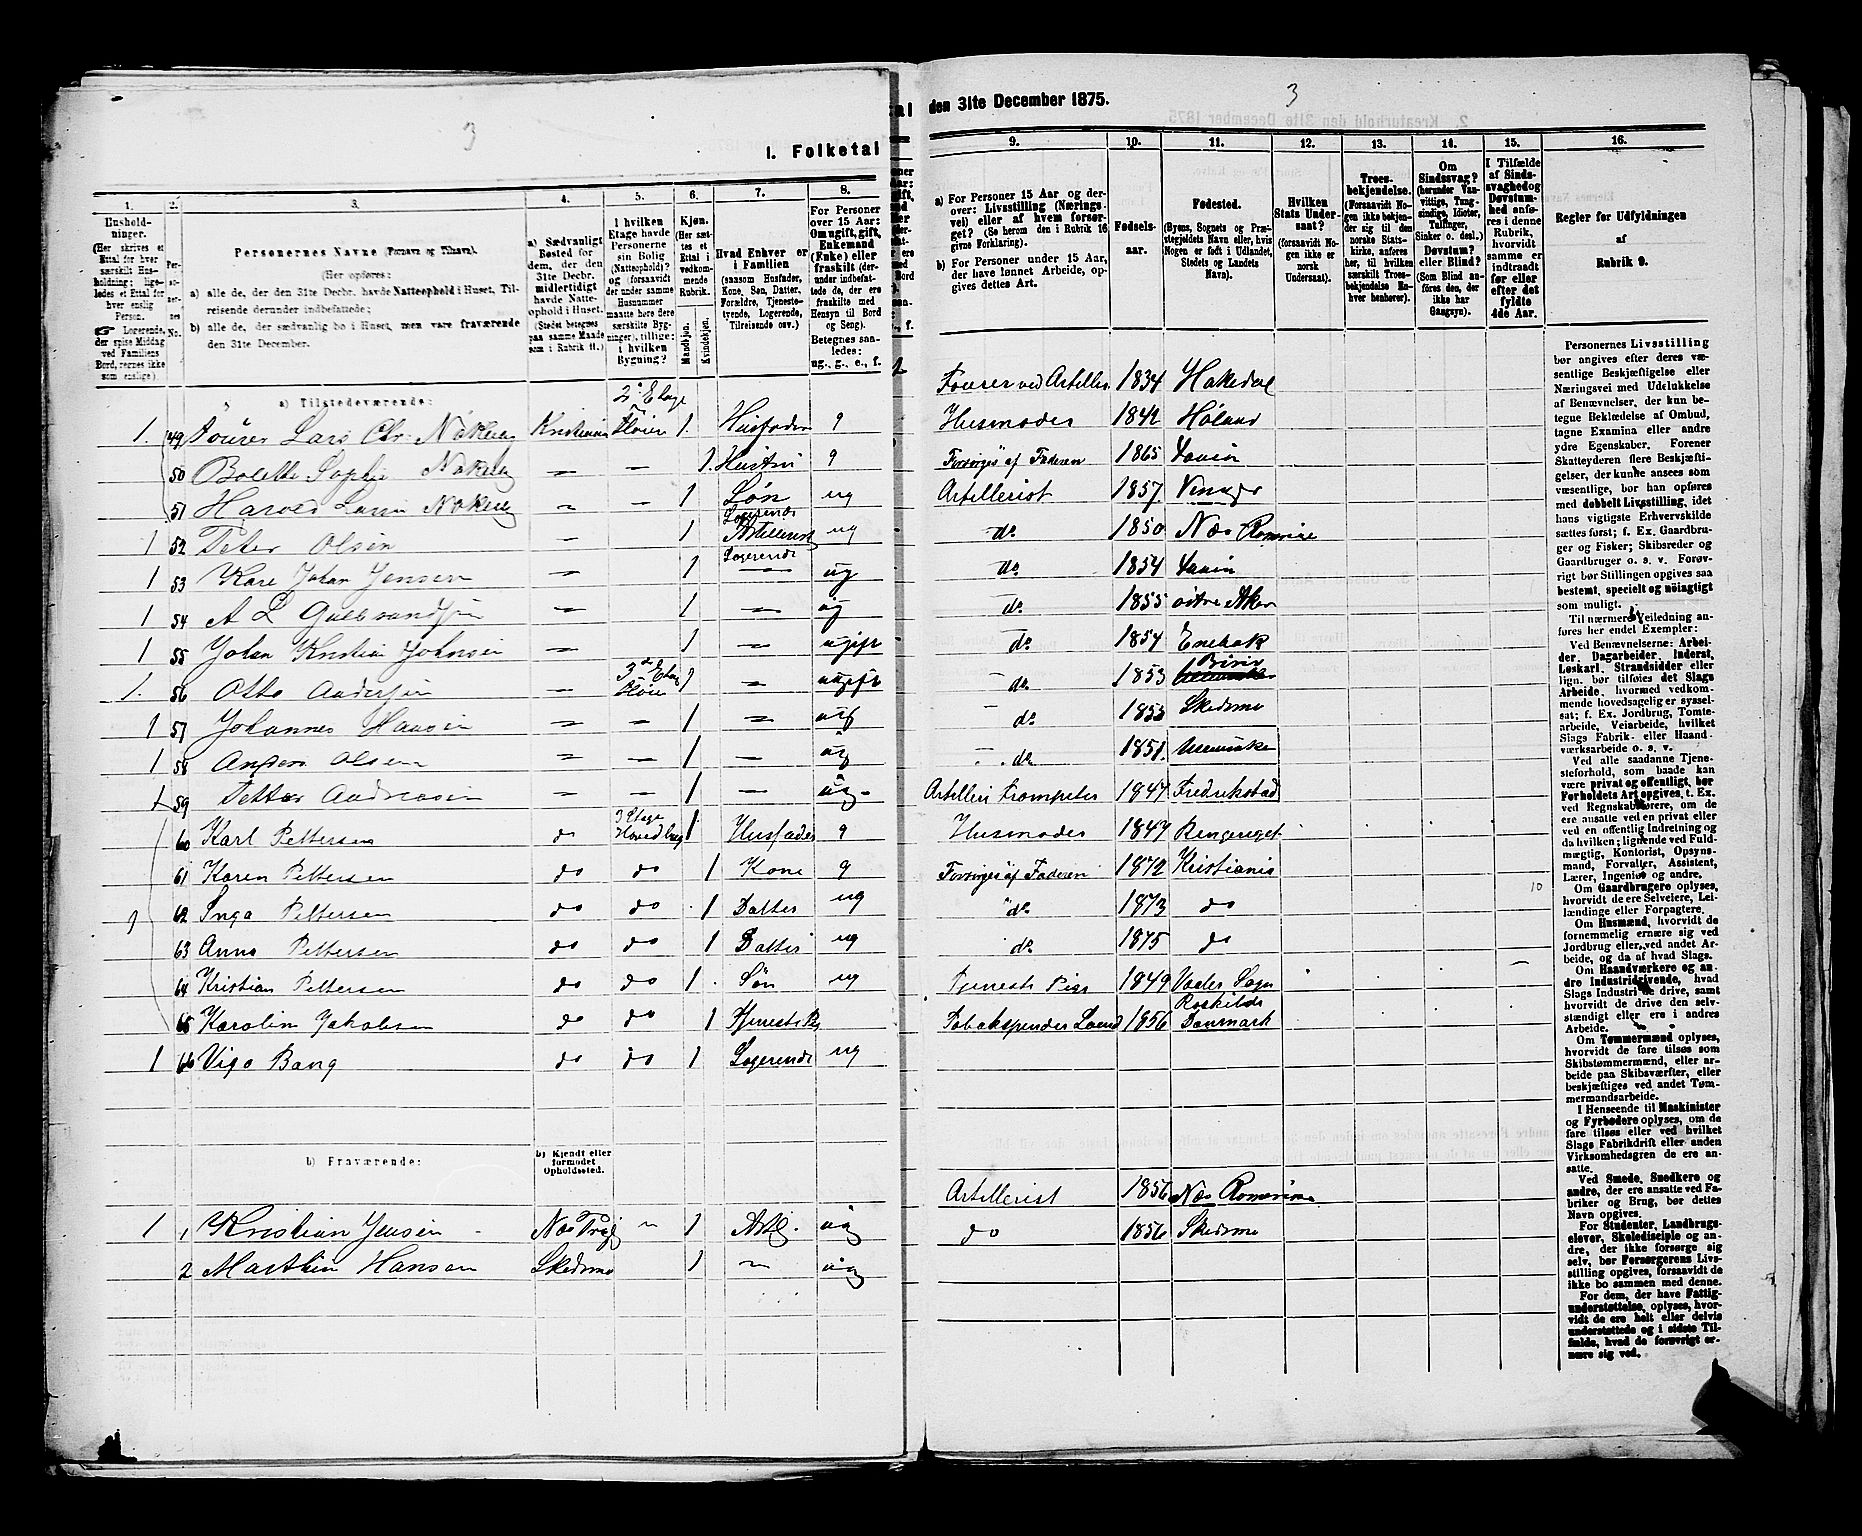 3
I. Folketal
den 31te December 1875.
3
1. 2. 3. 4. 5. 6. 7. 8.
9. 10. 11. 12. 13. 14. 15. 16.
Husholdninger.
(Her skrives et Ettal for hver særskilt Husholdning; ligeledes et Ettal for hver enslig Person.
Logerende, der spise Middag ved Familiens Bord, regnes ikke som enslige).
Personernes No.
Personernes Navne (Fornavn og Tilnavn).
(Her opføres:
a) alle de, der den 31te Decbr. havde Natteophold i Huset, Tilreisende derunder indbefattede;
b) alle de, der sædvanlig bo i Huset, men vare fraværende den 31te December.
a) Sædvanligt Bosted for dem, der den 31te Decbr. midlertidigt havde Natteophold i Huset. (Stedet betegnes paa samme Maade som i Rubrik 11.)
I hvilken Etage havde Personerne sin Bolig (Natteophold)?
Kjøn. (Her sættes et Ettal i vedkommende Rubrik.
Mandkjøn. Kvindekjøn.
Hvad Enhver er i Familien (saasom Husfader, Kone, Søn, Datter, Forældre, Tjenestetyende, Logerende, Tilreisende osv.)
For Personer over 15 Aar: Om ugift, gift, Enkemand (Enke) eller fraskilt (derunder indbefattede de, der ere fraskilte med Hensyn til Bord og Seng). Betegnes saaledes: ug., g., e., f.
a) For Personer 15 Aar og derover: Livsstilling (Næringsvei) eller af hvem forsørget? (Se herom den i Rubrik 16 givne Forklaring).
b) For Personer under 15 Aar, der have lønnet Arbeide, opgives dettes Art.
Fødselsaar.
Fødested.
(Byens, Sognets og Præstegjeldets Navn eller, hvis Nogen er født i Udlandet, Stedets og Landets Navn).
Hvilken Stats Undersaat? (forsaavidt Nogen ikke er norsk Undersaat).
Troesbekjendelse. (Forsaavidt Nogen ikke bekjender sig til den norske Statskirke, anføres her, til hvilken særskilt Troesbekjendelse Enhver henhører).
Om Sindssvag? (herunder Vanvittige, Tungsindige, Idioter, Tullinger, Sinker o. desl.) Døvstum? eller Blind? (Som Blind anføres den, der ikke har Gangsyn).
I Tilfælde af Sindssvaghed og Døvstumhed anføres i denne Rubrik, hvorvidt samme er indtraadt før eller efter det fyldte 4de Aar.
Regler for Udfyldningen af Rubrik 9.
a) Tilstedeværende:
2den Etage
1. 49 Fourer Lars Chr. Nøkleby Kristiania Fløien 1. Husfader g Fourer ved Artilleri 1834 Hakedal
50 Bolette Sophie Nøkleby 1 Hustru g Husmoder 1842 Høland
51 Harold Larsin Nøkleby 1 Søn ug Forsørges af Faderen 1865
1 52 Peter Olsen 1 Logerende Artillerist ug Artillerist 1857 Vinger
1 53 Kare Johan Jensen 1 Logerende ug do 1850 Næs Romerike
1 54 A L 1 ug do 1854
1 55 Johan Kristian Johnsen 1 ugift do 1855 Aker
1. 56 Otto Andersen 3de Etage Fløien 1 ugift do 1854 Enebak
1 57 Johannes Hansen 1 ug do 1853 Biri
1 58 Anders Olsen 1 ug do 1853 Skedsmo
1 59 Petter Andreasen 1 ug do 1851
60 Karl Pettersen do 3 Etage Hovedbyg 1 Husfader g Artilleri Trompeter 1847 Fredrikstad
61 Karen Pettersen do do 1 Kone g Husmoder 1847 Ringeriget
1 62 Inga Pettersen do do 1 Datter ug Forsørges af Faderen 1872 Kristiania 10
63 Anna Pettersen do do 1 Datter ug do 1873 do
64 Kristian Pettersen do do 1 Søn ug do 1875 do
65 Karolin Jakobsen do do 1 Tjenests Pige Tjenests Pige 1849 Vaaler Sogn
1 66 Vigo Bang do do 1 Logerende ug Tobakspinder Svend 1856 Roskilde Danmark
b) Fraværende:
b) Kjendt eller formodet Opholdssted.
1 1 Kristian Jensen 1 Art. ug Artillerist 1856 Næs Romerike
2 Marthin Hansen Skedsmo 1 ug do 1856 Skedsmo
Personernes Livsstilling bør angives efter deres væsentlige Beskjæftigelse eller Næringsvei med Udelukkelse af Benævnelser, der kun betegne Beklædelse af Ombud, tagne Examina eller andre ydre Egenskaber. Forener Skatteyderen flere Beskjæftigelser, der kunne ansees som væsentlige, bør han opføres med dobbelt Livsstilling, idet hans vigtigste Erhvervskilde sættes først; f. Ex. Gaardbruger og Fisker; Skibsreder og Gaardbruger o. s. v. Forøvrigt bør Stillingen opgives saa bestemt, specielt og nöiagtigt som muligt.
Til nærmere Veiledning anføres her endel Exempler:
Ved Benævnelserne: Arbeider, Dagarbeider, Inderst, Løskarl, Strandsidder eller lign. bør tilføies det Slags Arbeide, hvormed vedkommende hovedsagelig er sysselsat; f. Ex. Jordbrug, Tomtearbeide, Veiarbeide, hvilket Slags Fabrik- eller Haandværksarbeide o. s. v.
Ved alle saadanne Tjenesteforhold, som baade kan være privat og offentligt, bør Forholdets Art opgives, f. Ex. ved Regnskabsførere, om de ere ansatte ved en privat eller ved en offentlig Indretning og da hvilken; lignende ved Fuldmægtig, Kontorist, Opsynsmand, Forvalter, Assistent, Lærer, Ingeniør og andre.
Om Gaardbrugere oplyses, hvorvidt de ere Selveiere, Leilændinge eller Forpagtere.
Om Husmænd, hvorvidt de fornemmelig ernære sig ved Jordbrug eller ved andet Arbeide, og da af hvad Slags.
Om Haandværkere og andre Industridrivende, hvad Slags Industri de drive, samt hvorvidt de drive den selvstændigt eller ere i andres Arbeide.
Om Tømmermænd oplyses, hvorvidt de fare tilsøs som Skibstømmermænd, eller arbeide paa Skibsværfter, eller beskjæftiges ved andet Tømmermandsarbeide.
I Henseende til Maskinister og Fyrbødere oplyses, om de fare tilsøs eller ved hvilket Slags Fabrikdrift eller anden Virksomhedsgren de ere ansatte.
Ved Smede, Snedkere og andre, der ere ansatte ved Fabriker og Brug, bør dettes Navn opgives.
For Studenter, Landbrugselever, Skoledisciple og andre, der ikke forsørge sig selv, bør Forsørgerens Livsstilling opgives, forsaavidt de ikke bo sammen med denne.
For dem, der have Fattigunderstøttelse, oplyses, hvorvidt de ere helt eller delvis understøttede og i sidste Tilfælde, hvad de forøvrigt ernære sig ved.